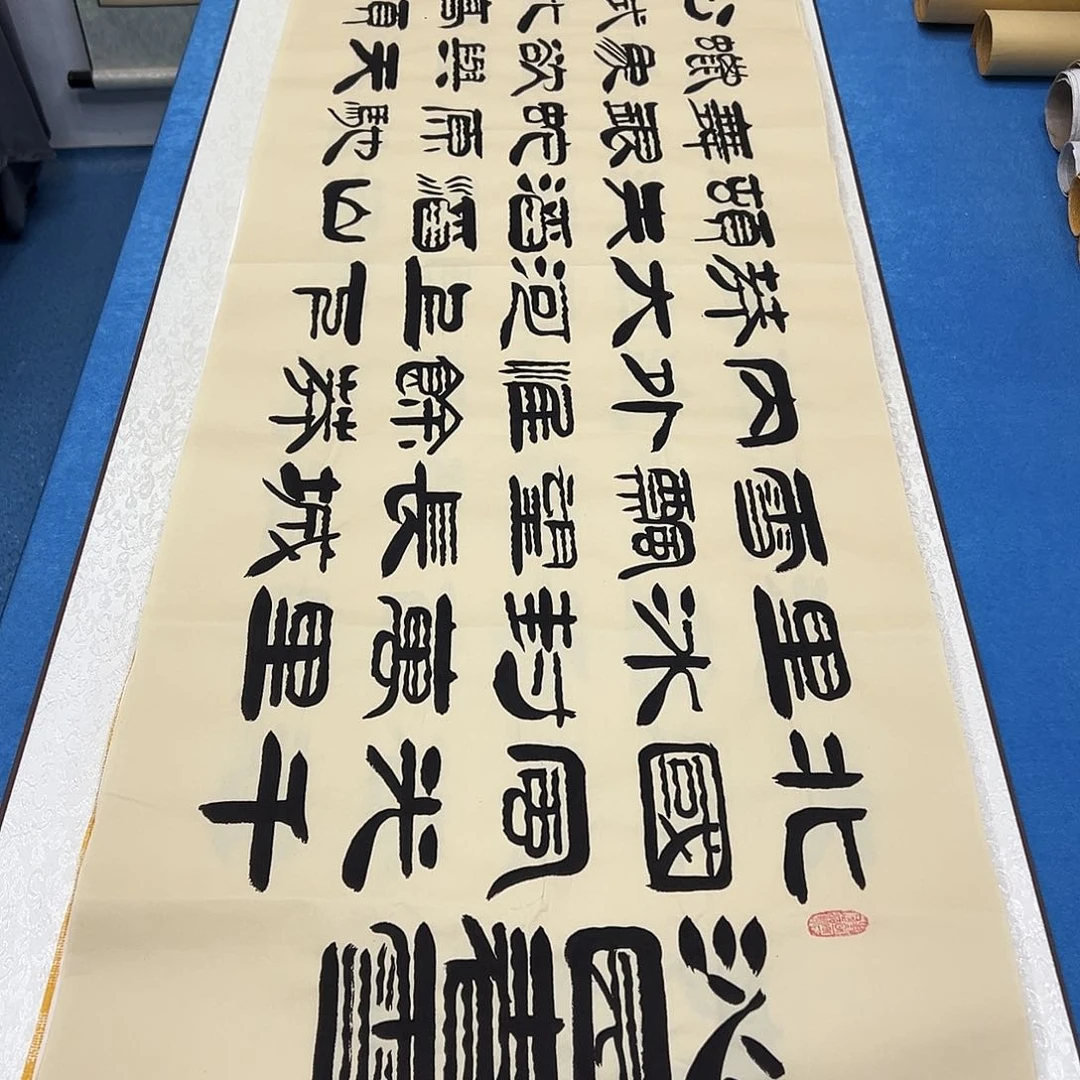 沁園春雪
北國風光千
里冰封萬里
雪飄望長城
内外惟餘莽
莽大河上下
頓失滔滔山
舞銀蛇原馳
蠟象欲與天
公試比高須